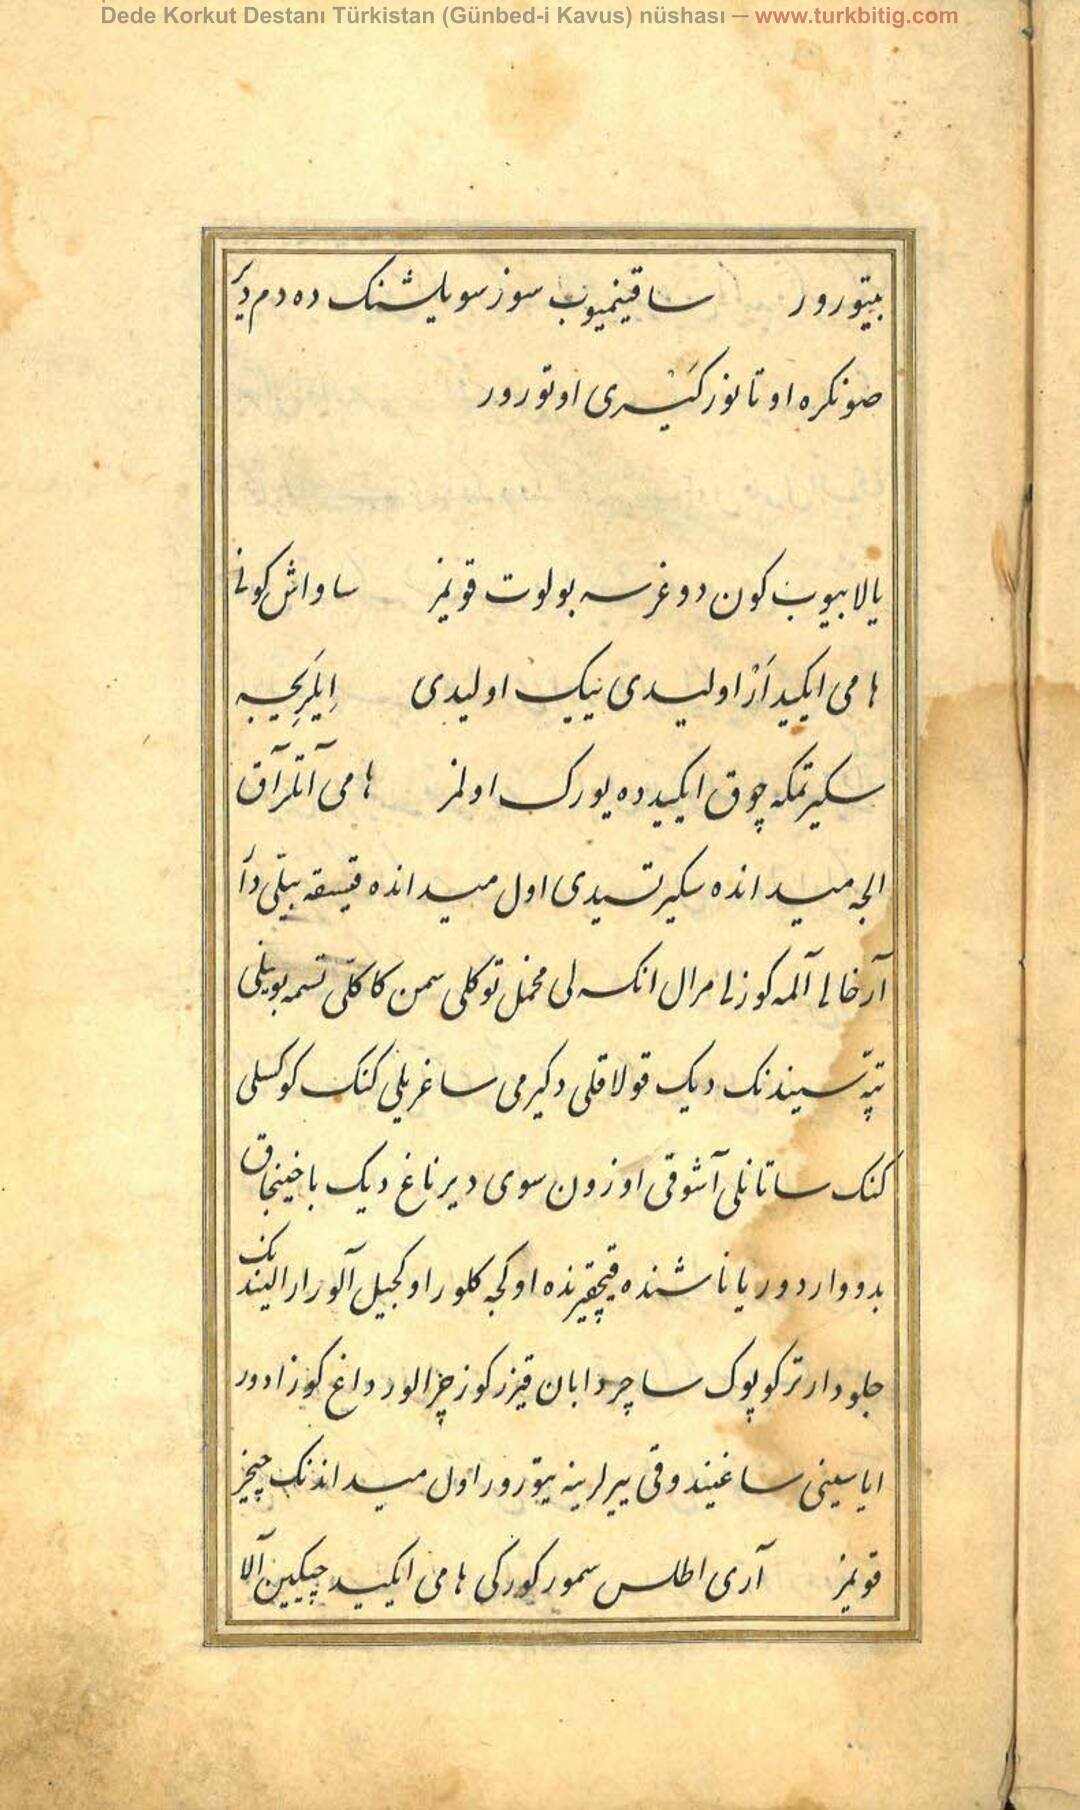 Dede Korkut Destanı Türkistan (Günbed-i Kavus) nüshası — www.turkbitig.com
بیتورور ساقینمیوب سوز سویلشنک ده دم دیر
صونکره اوتانور کیسری اوتورور
یالابیوب کون دوغرسه بولوت قویمز ساواش کونی
هامی ایکید اَر اولیدی بیک اولیدی اِیلَرِیجیه
سکیرتمکه چوق ایکیدده یورک اولمز هامی آتلر آق
الجه میدانده سکیرتسیدی اول میدانده قیسقه بیلّی دا
آرخالی آلمه کوزلی مرال انکسه لی مخمل توکلی سمن کاکلّی تسمه بوینلی
تپّه سیندنک دیک قولاقلی دکیرمی ساغریلی کنک کوکسلی
کنک ساتانلی آشوقی اوزون سوی دیرناغ دیک باخینجاق
بدو واردور یاناشنده قیچقیرنده اوکجه کلور اوکجیل آلورار الیندنک
جلودارتر کوپوک ساچر دابان قیزر کوز چزالور داغ کوزادور
ایاسینی ساغیندوقی ییرلرینه ییتورور اول میداندنک چیخیز
قویمز آری اطلس سمور کورکی هامی ایکید چیکیین آلا